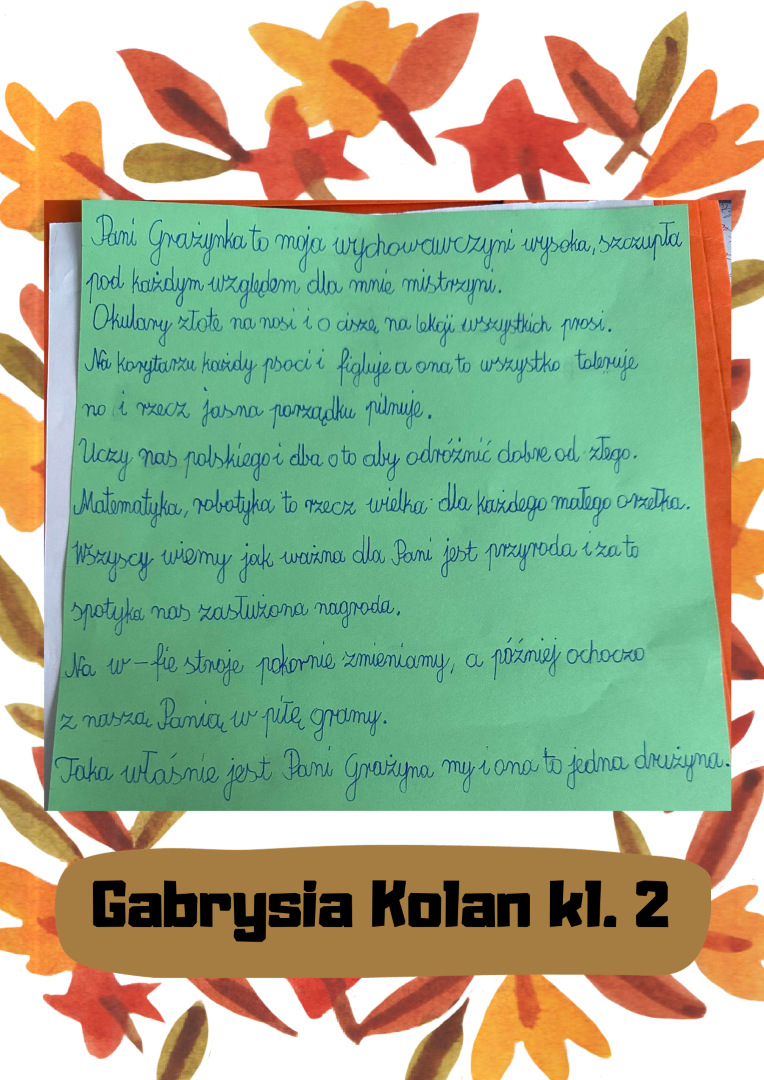 Pani Grażynka to moja wychowawczyni wysoka, szczupła
pod każdym względem dla mnie mistrzyni.
Okulary złote na nosi i o ciszę na lekcji wszystkich prosi.
Na korytarzu każdy psoci i figluje a ona to wszystko toleruje
no i rzecz jasna porządku pilnuje.
Uczy nas polskiego i dba o to aby odróżnić dobre od złego.
Matematyka, robotyka to rzecz wielka dla każdego małego orzełka.
Wszyscy wiemy jak ważna dla Pani jest przyroda i za to
spotyka nas zasłużona nagroda.
Na w-fie stroje pokornie zmieniamy, a później ochoczo
z naszą Panią w piłę gramy.
Taka właśnie jest Pani Grażyna my i ona to jedna drużyna.
Gabrysia Kolan kl. 2